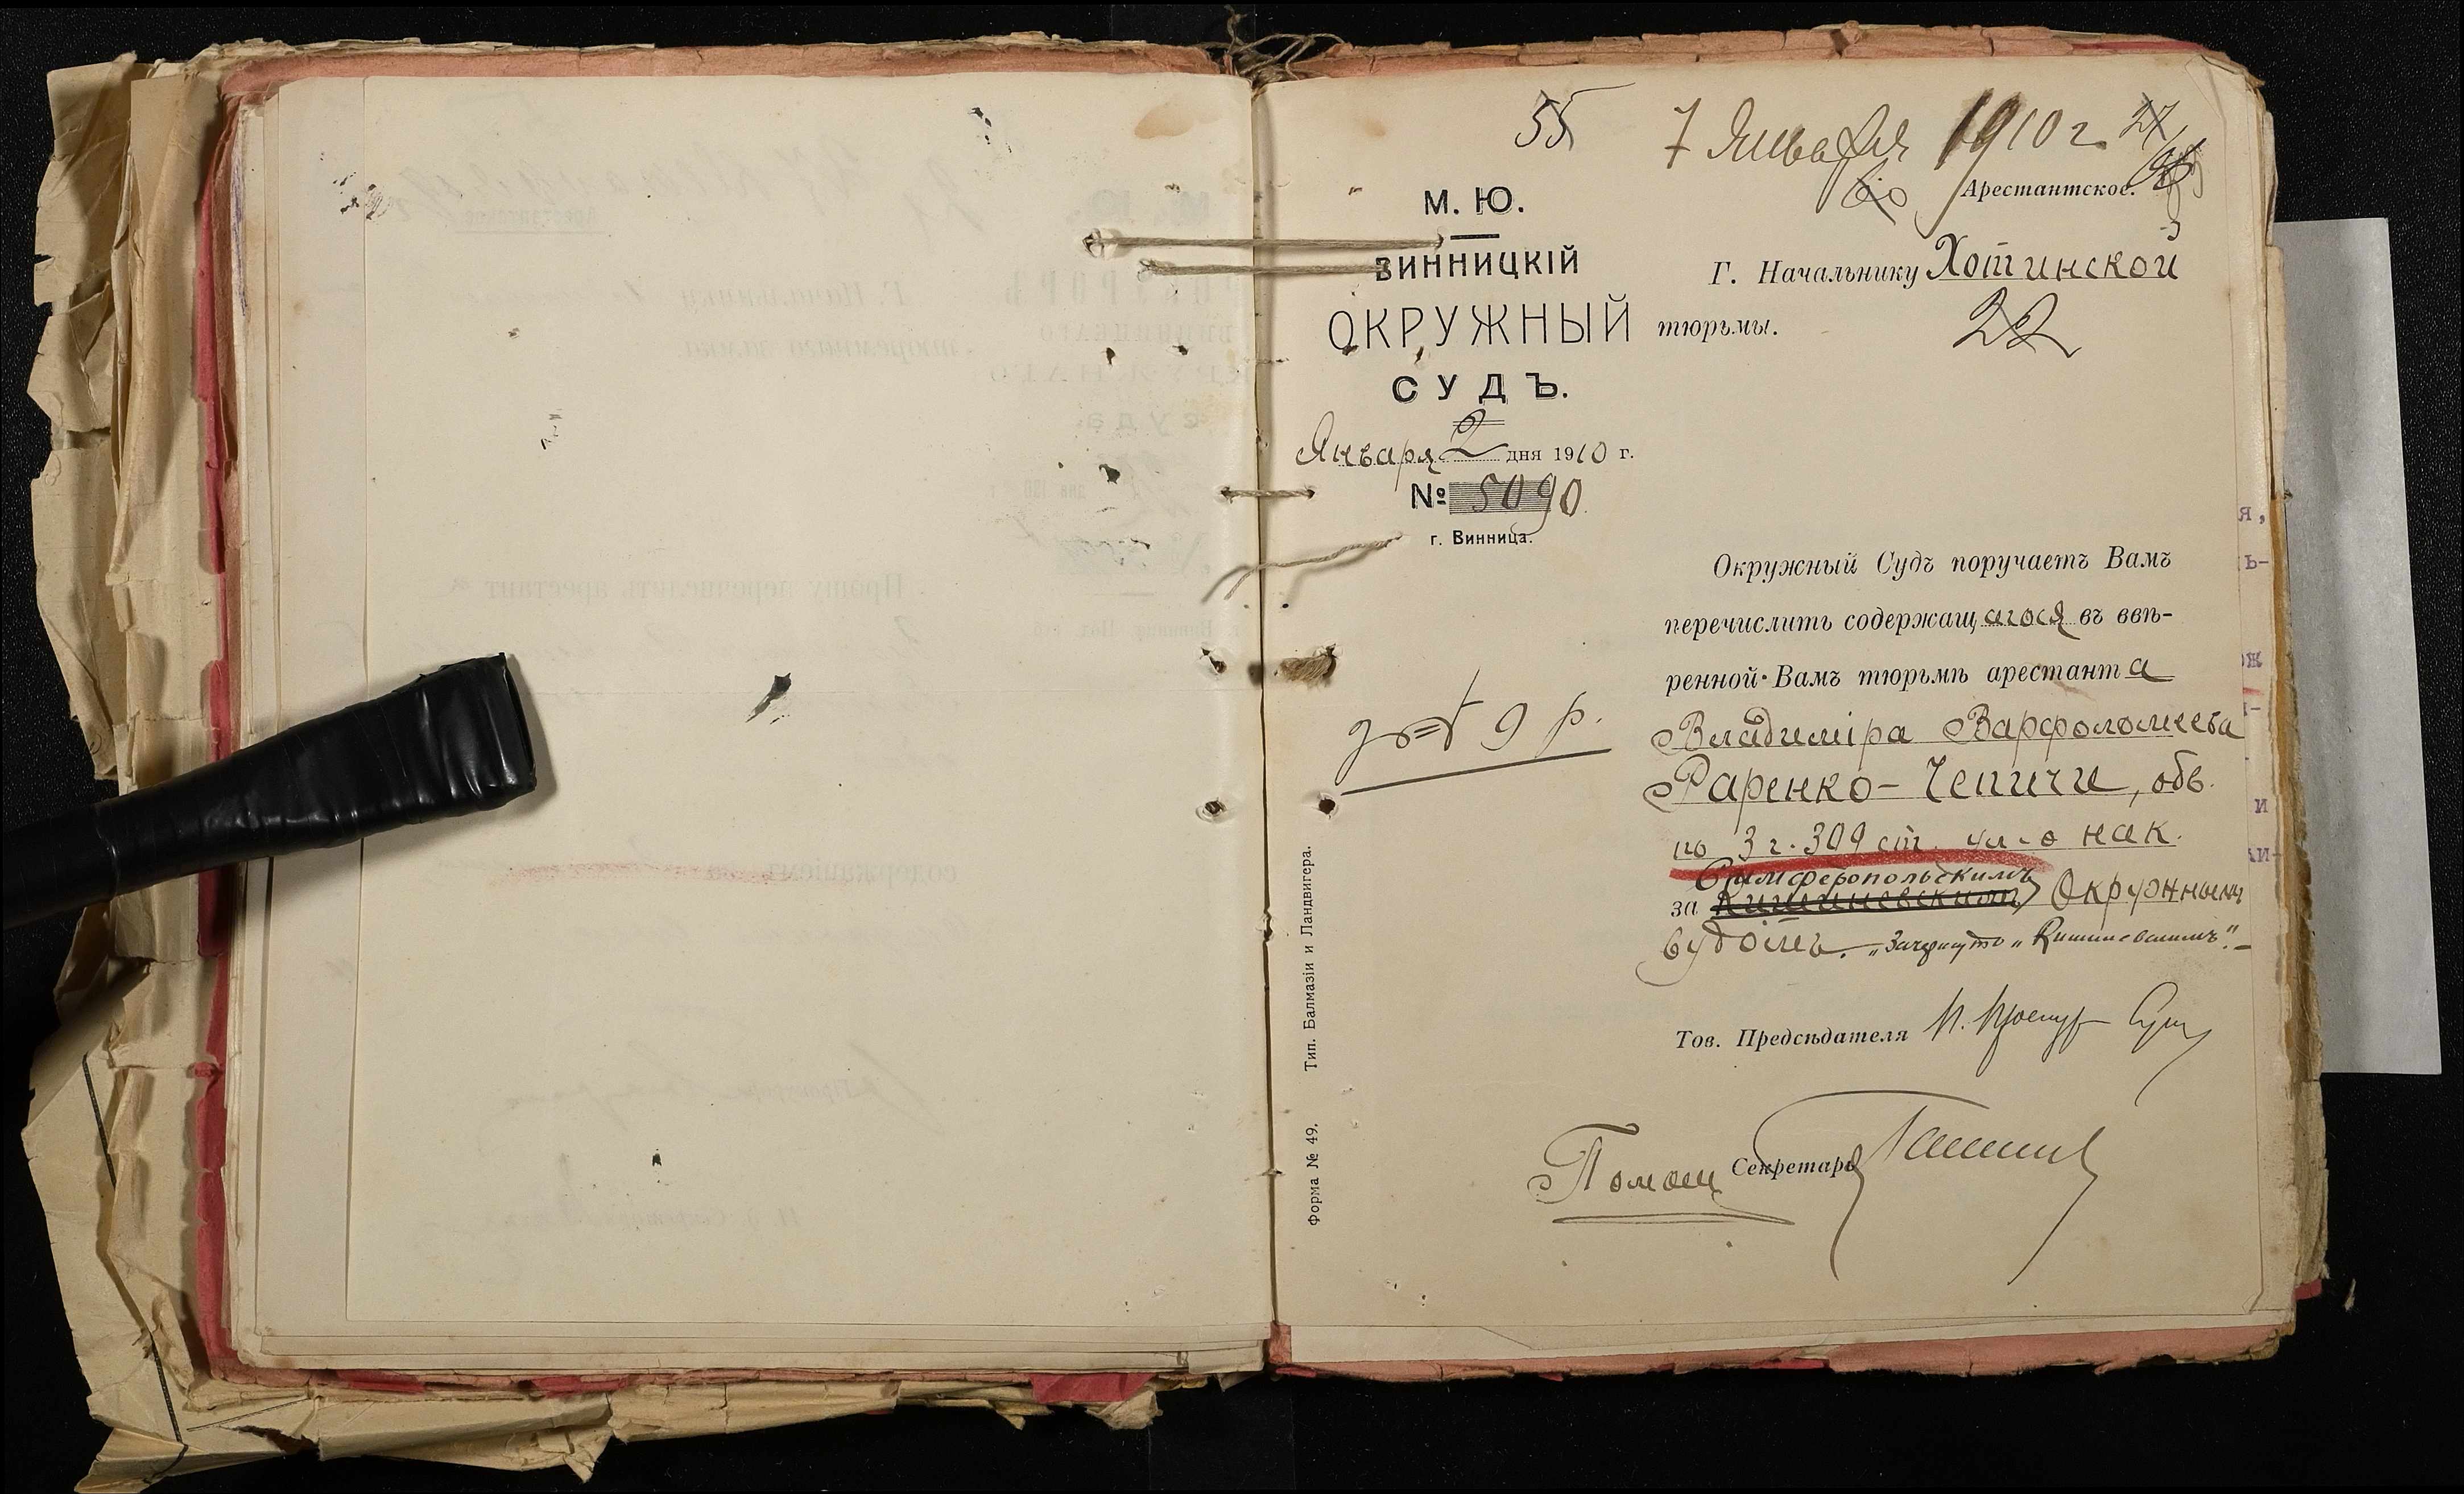 55
7 Января 1910 г.
27
60
Арестантское.
М. Ю.
ВИННИЦКІЙ
ОКРУЖНЫЙ
СУДЪ.
Января 2 дня 1910 г.
№ 5090
г. Винница.
Г. Начальнику Хотинской
тюрьмы.
22
Окружный Судъ поручаетъ Вамъ
перечислить содержащагося въ ввѣ-
ренной Вамъ тюрьмѣ арестанта
Владиміра Варфоломеева
Раренко-Чепичи, обв.
по 3 г. 309 ст. ул. о нак.
Симферопольскимъ
за Кишиневскимъ Окружнымъ
Судомъ. „Зачеркнуто „Кишиневскимъ".-
9 р.
Тов. Предсѣдателя
Помощ Секретаря
Форма № 49. Тип. Балмазіи и Ландвигера.
я,
ь-
ож
и